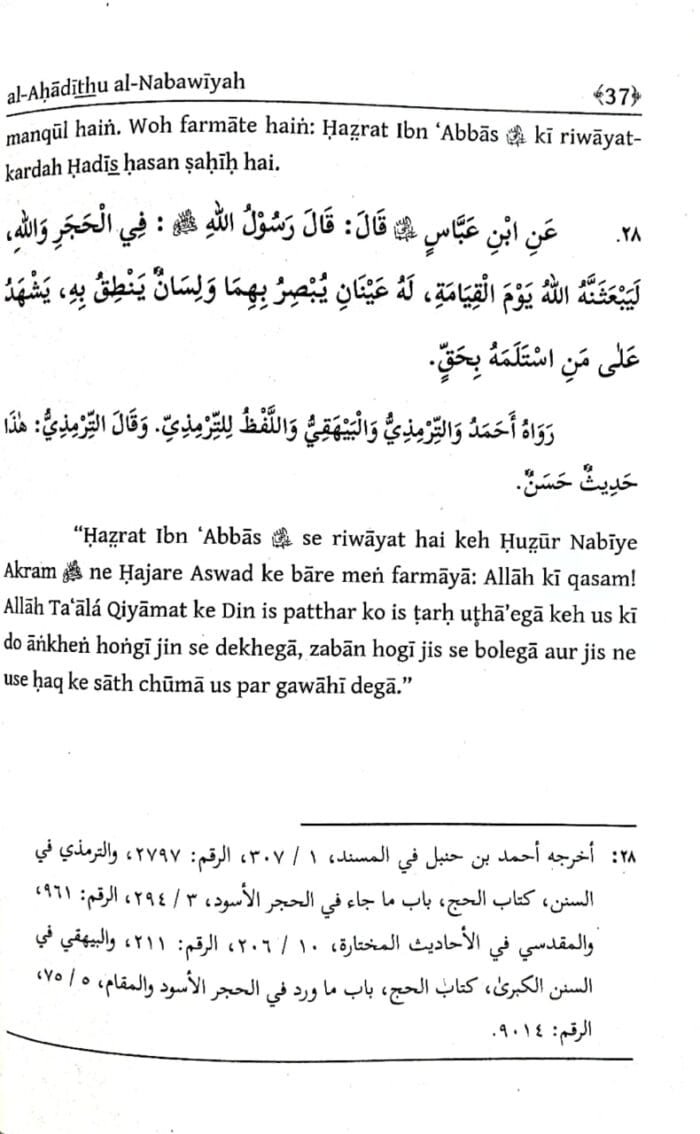 al-Aḥādīthu al-Nabawīyah
﴾37﴿
manqūl haiṅ. Woh farmāte haiṅ: Ḥaẓrat Ibn ‘Abbās kī riwāyat-
kardah Ḥadīs ḥasan ṣaḥīḥ hai.
٢٨. عَنِ ابْنِ عَبَّاسٍ قَالَ: قَالَ رَسُوْلُ اللهِ ﷺ : فِي الْحَجَرِ وَاللهِ،
لَيَبْعَثَنَّهُ اللهُ يَوْمَ الْقِيَامَةِ، لَهُ عَيْنَانِ يُبْصِرُ بِهِمَا وَلِسَانٌ يَنْطِقُ بِهِ، يَشْهَدُ
عَلٰى مَنِ اسْتَلَمَهُ بِحَقٍّ.
رَوَاهُ أَحْمَدُ وَالتِّرْمِذِيُّ وَالْبَيْهَقِيُّ وَاللَّفْظُ لِلتِّرْمِذِيِّ. وَقَالَ التِّرْمِذِيُّ: هٰذَا
حَدِيثٌ حَسَنٌ.
“Ḥaẓrat Ibn ‘Abbās se riwāyat hai keh Ḥuẓūr Nabīye
Akram ﷺ ne Ḥajare Aswad ke bāre meṅ farmāyā: Allāh kī qasam!
Allāh Ta‘álá Qiyāmat ke Din is patthar ko is ṭarḥ uṭhā’egā keh us kī
do āṅkheṅ hoṅgī jin se dekhegā, zabān hogī jis se bolegā aur jis ne
use ḥaq ke sāth chūmā us par gawāhī degā.”
٢٨: أخرجه أحمد بن حنبل في المسند، ١ / ٣٠٧، الرقم: ٢٧٩٧، والترمذي في
السنن، كتاب الحج، باب ما جاء في الحجر الأسود، ٣ / ٢٩٤، الرقم: ٩٦١،
والمقدسي في الأحاديث المختارة، ١٠ / ٢٠٦، الرقم: ٢١١، والبيهقي في
السنن الكبرىٰ، كتاب الحج، باب ما ورد في الحجر الأسود والمقام، ٥ / ٧٥،
الرقم: ٩٠١٤.